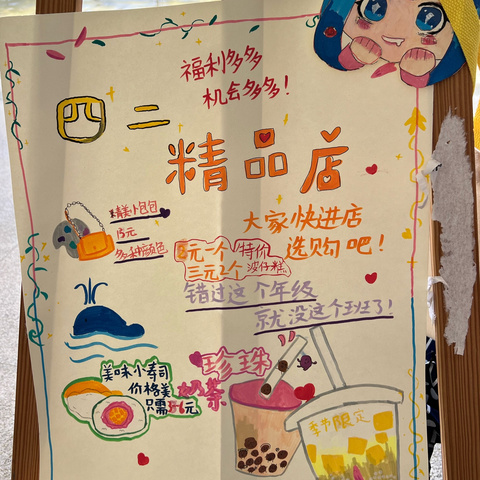 福利多多多
机会多多多！
四二
精品店
精美小包包
15元
多种颜色
大家快进店
选购吧！
元一个 特价
三元2个 波仔糕
错过这个年级
就没这个班了！
美味小寿司
价格美
只需 元
珍珠
奶茶
季节限定